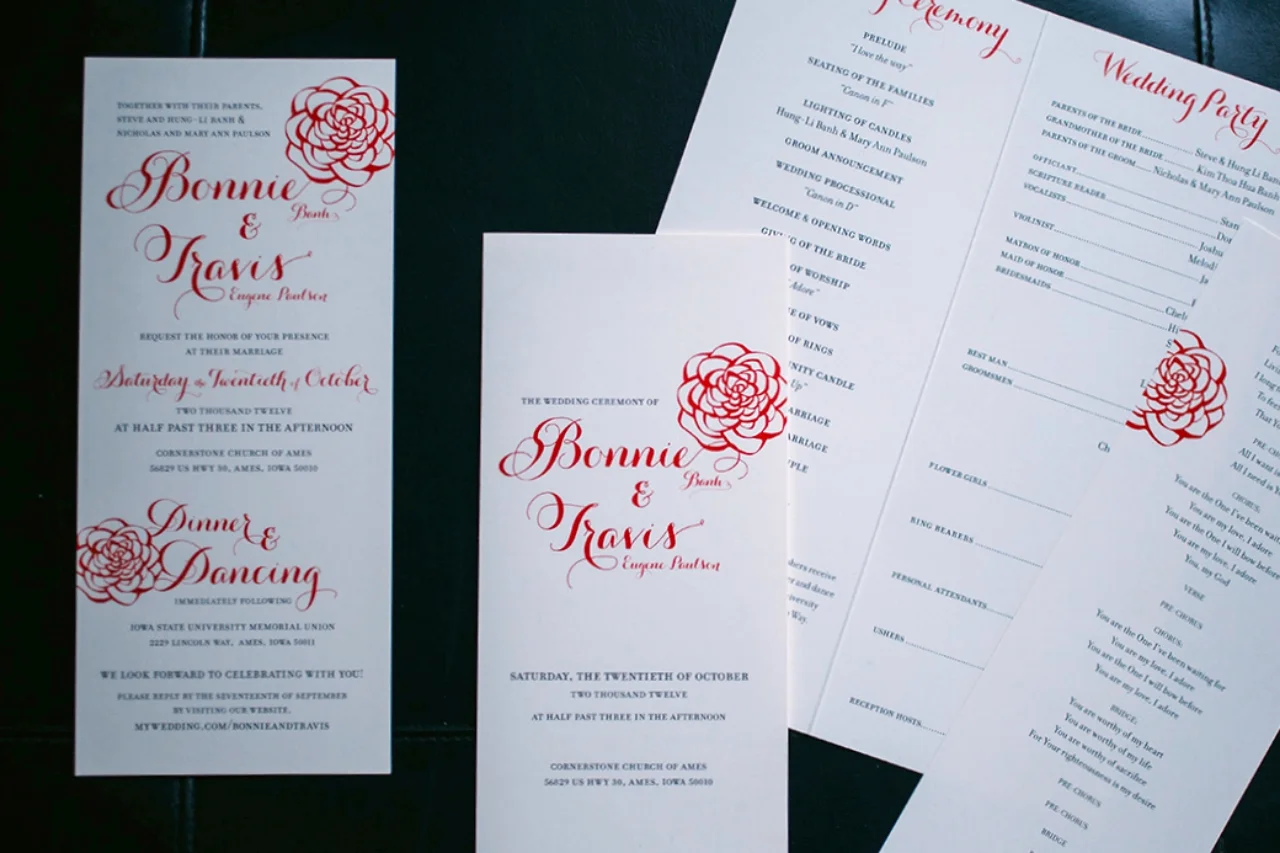 TOGETHER WITH THEIR PARENTS,
STEVE AND HUNG-LI BANH &
NICHOLAS AND MARY ANN PAULSON
Bonnie
Banh
&
Travis
Eugene Paulson
REQUEST THE HONOR OF YOUR PRESENCE
AT THEIR MARRIAGE
Saturday the Twentieth of October
TWO THOUSAND TWELVE
AT HALF PAST THREE IN THE AFTERNOON
CORNERSTONE CHURCH OF AMES
56829 US HWY 30, AMES, IOWA 50010
Dinner &
Dancing
IMMEDIATELY FOLLOWING
IOWA STATE UNIVERSITY MEMORIAL UNION
2229 LINCOLN WAY, AMES, IOWA 50011
WE LOOK FORWARD TO CELEBRATING WITH YOU!
PLEASE REPLY BY THE SEVENTEENTH OF SEPTEMBER
BY VISITING OUR WEBSITE,
MYWEDDING.COM/BONNIEANDTRAVIS
THE WEDDING CEREMONY OF
Bonnie
Banh
&
Travis
Eugene Paulson
SATURDAY, THE TWENTIETH OF OCTOBER
TWO THOUSAND TWELVE
AT HALF PAST THREE IN THE AFTERNOON
CORNERSTONE CHURCH OF AMES
56829 US HWY 30, AMES, IOWA 50010
Ceremony
PRELUDE
"I love the way"
SEATING OF THE FAMILIES
"Canon in F"
LIGHTING OF CANDLES
Hung-Li Banh & Mary Ann Paulson
GROOM ANNOUNCEMENT
WEDDING PROCESSIONAL
"Canon in D"
WELCOME & OPENING WORDS
GIVING OF THE BRIDE
OF WORSHIP
"Adore"
OF VOWS
OF RINGS
UNITY CANDLE
Up"
MARRIAGE
ARRIAGE
UPLE
receive
or and dance
iversity
Way.
Wedding Party
PARENTS OF THE BRIDE Steve & Hung Li Banh
GRANDMOTHER OF THE BRIDE Kim Thoa Hua Banh
PARENTS OF THE GROOM Nicholas & Mary Ann Paulson
OFFICIANT Stan
SCRIPTURE READER Dor
VOCALISTS Joshu
Melod
VIOLINIST Ja
MATRON OF HONOR
MAID OF HONOR Chel
BRIDESMAIDS Hi
S
BEST MAN
GROOMSMEN
Ch
FLOWER GIRLS
RING BEARERS
PERSONAL ATTENDANTS
USHERS
RECEPTION HOSTS
For
Livin
I long
To fee
That k
PRE-CHO
All I want is
All I need is
CHORUS:
You are the One I've been waiting
You are my love, I adore
You are the One I will bow before
You are my love, I adore
You, my God
VERSE
PRE-CHORUS
CHORUS:
You are the One I've been waiting for
You are my love, I adore
You are the One I will bow before
You are my love, I adore
BRIDGE:
You are worthy of my heart
You are worthy of my life
You are worthy of sacrifice
For Your righteousness is my desire
PRE-CHORUS
PRE-CHORUS
BRIDGE